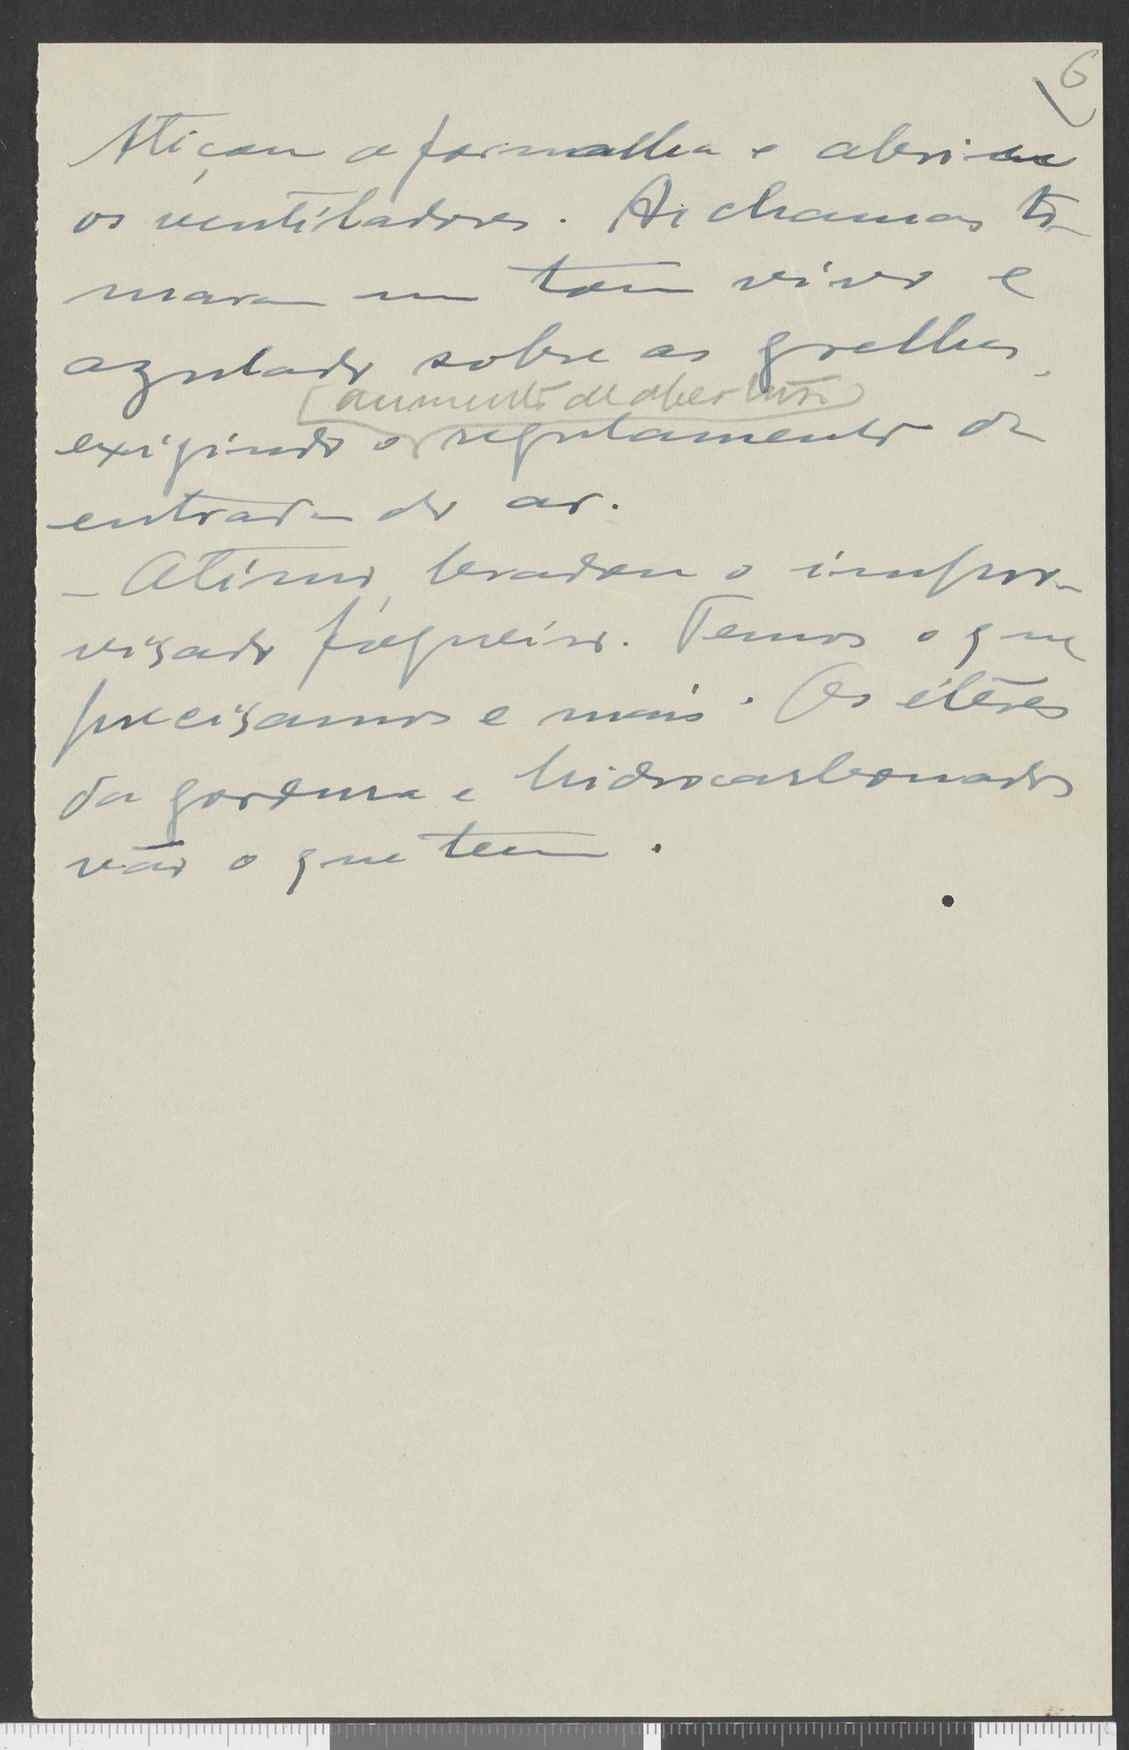 6
Atiçou a fornalha e abriu
os ventiladores. As chamas to-
maram um tom vivo e
azulado sobre as grelhas,
(aumento de abertura)
exigindo o regulamento da
entrada do ar.
— Otimo, bradou o impro-
vizado fogueiro. Temos o que
precizamos e mais. Os éteres
da gordura e hidrocarbonados
vão o que tem.